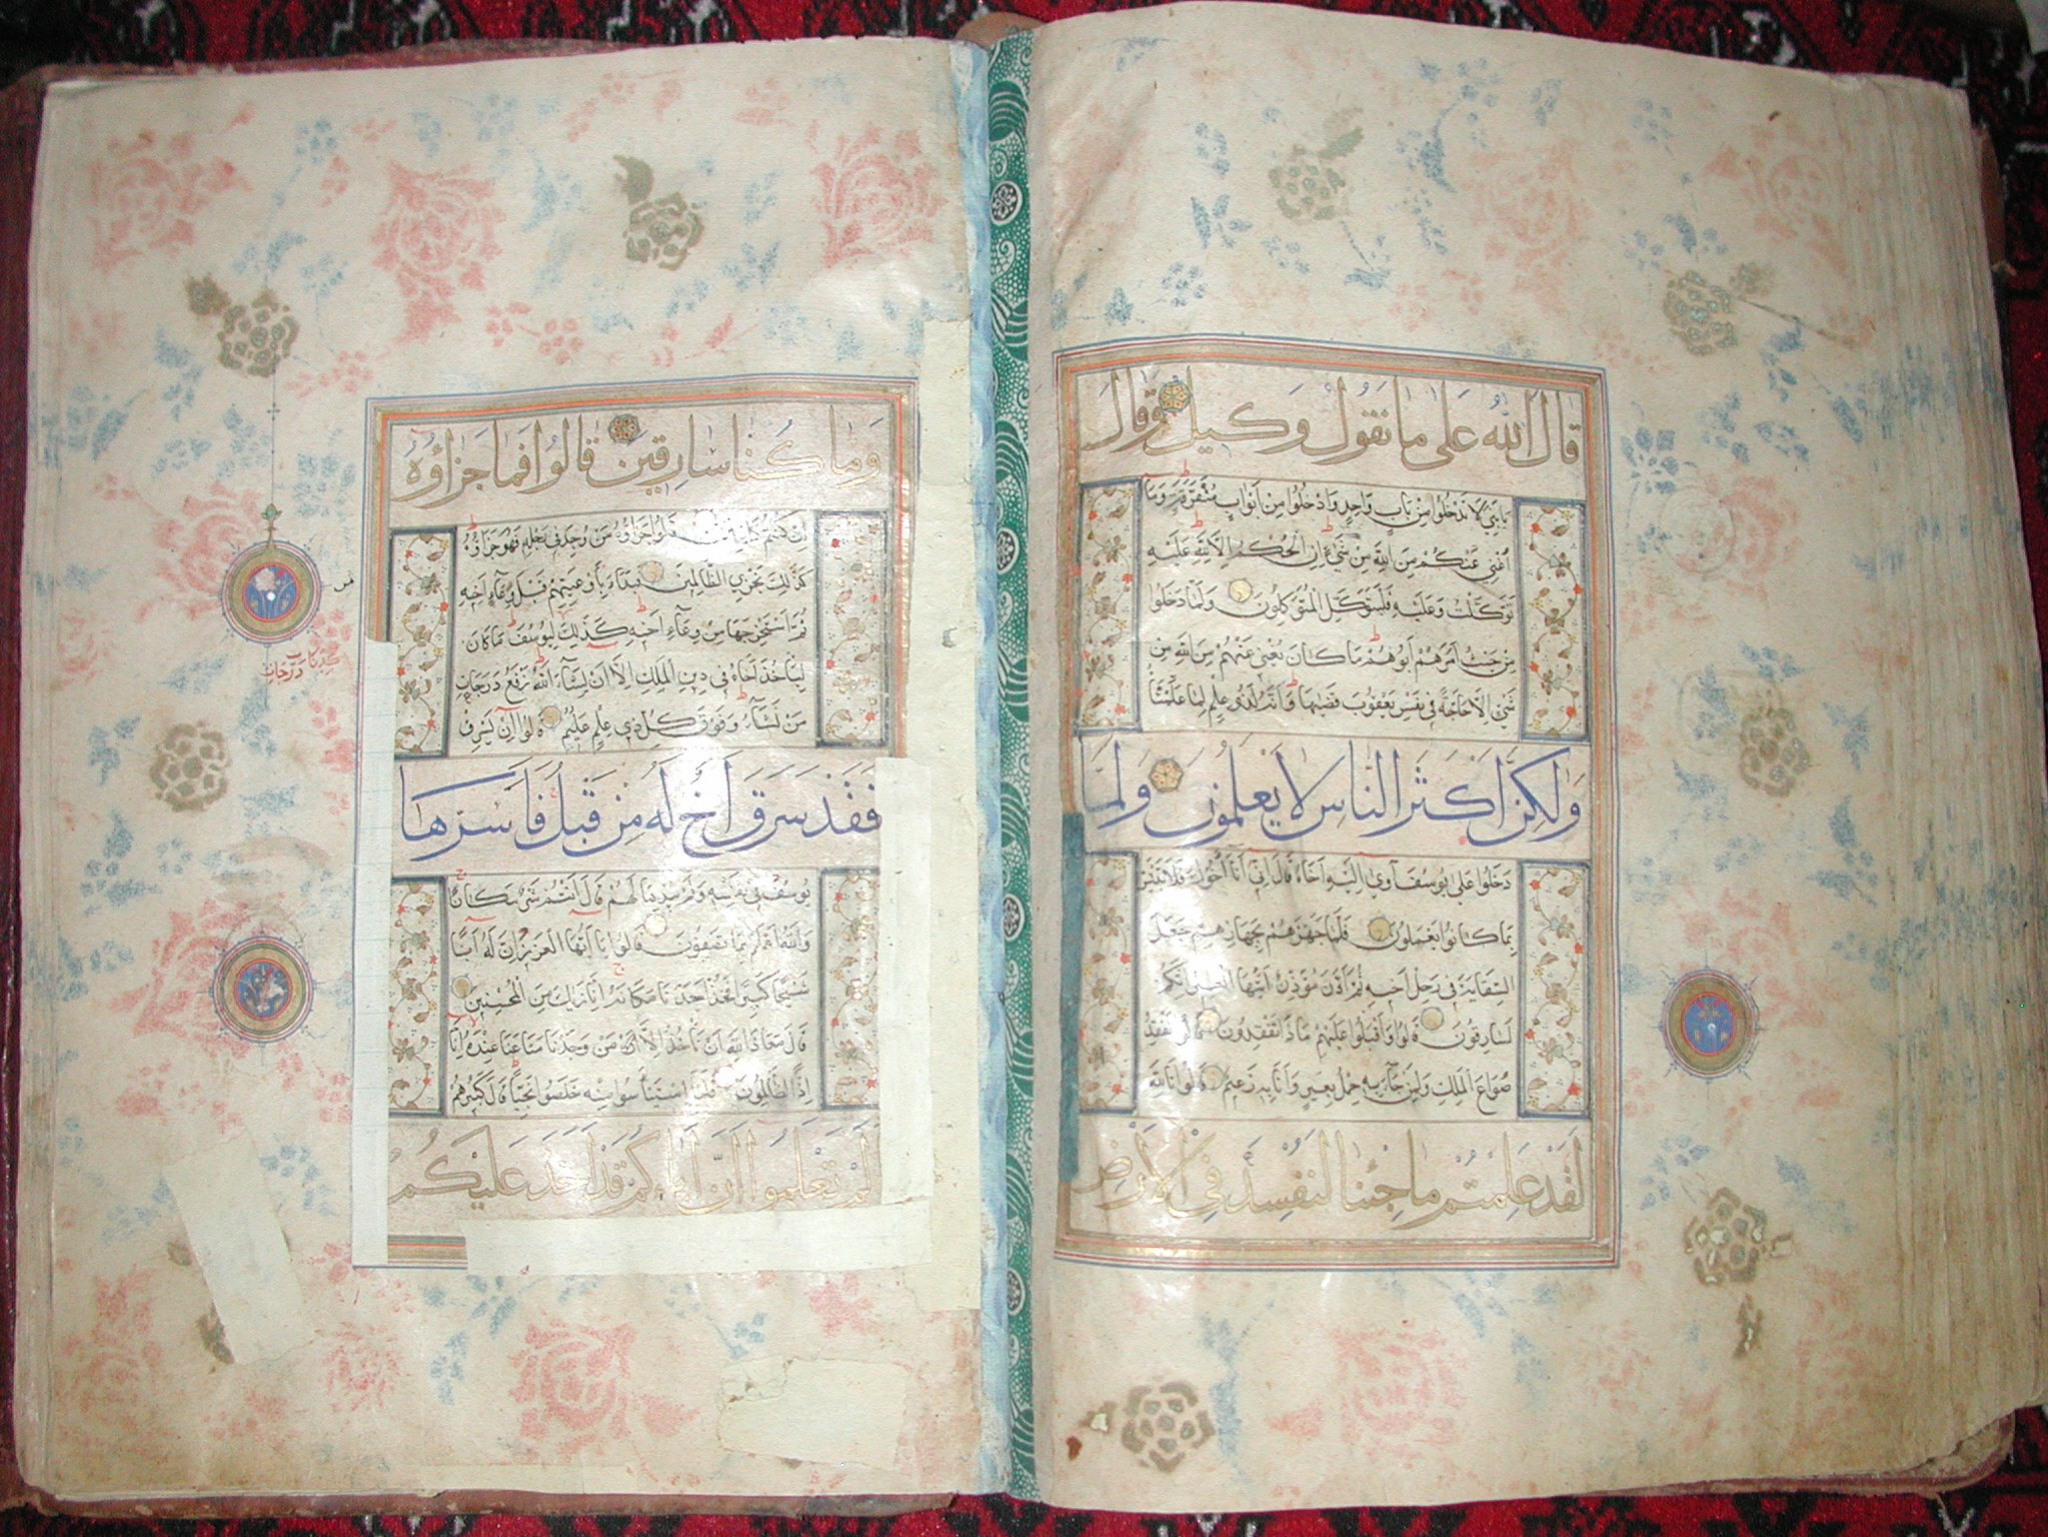 قال الله على ما نقول وكيل وقال
يا بني لا تدخلوا من باب واحد وادخلوا من ابواب متفرقة وما
اغني عنكم من الله من شيء ان الحكم الا لله عليه
توكلت وعليه فليتوكل المتوكلون ولما دخلوا
من حيث امرهم ابوهم ما كان يغني عنهم من الله من
شيء الا حاجة في نفس يعقوب قضيها وانه لذو علم لما علمناه
ولكن اكثر الناس لا يعلمون ولما
دخلوا على يوسف آوى اليه اخاه قال اني انا اخوك فلا تبتئس
بما كانوا يعملون فلما جهزهم بجهازهم جعل
السقاية في رحل اخيه ثم اذن مؤذن ايتها العير انكم
لسارقون قالوا واقبلوا عليهم ماذا تفقدون قالوا نفقد
صواع الملك ولمن جاء به حمل بعير وانا به زعيم قالوا تالله
لقد علمتم ما جئنا لنفسد في الارض
وما كنا سارقين قالوا فما جزاؤه
ان كنتم كاذبين قالوا جزاؤه من وجد في رحله فهو جزاؤه
كذلك نجزي الظالمين فبدأ باوعيتهم قبل وعاء اخيه
ثم استخرجها من وعاء اخيه كذلك كدنا ليوسف ما كان
ليأخذ اخاه في دين الملك الا ان يشاء الله نرفع درجات
من نشاء وفوق كل ذي علم عليم قالوا ان يسرق
فقد سرق اخ له من قبل فاسرها
يوسف في نفسه ولم يبدها لهم قال انتم شر مكانا
والله اعلم بما تصفون قالوا يا ايها العزيز ان له ابا
شيخا كبيرا فخذ احدنا مكانه انا نراك من المحسنين
قال معاذ الله ان نأخذ الا من وجدنا متاعنا عنده انا
اذا لظالمون فلما استيئسوا منه خلصوا نجيا قال كبيرهم
الم تعلموا ان اباكم قد اخذ عليكم
درجات